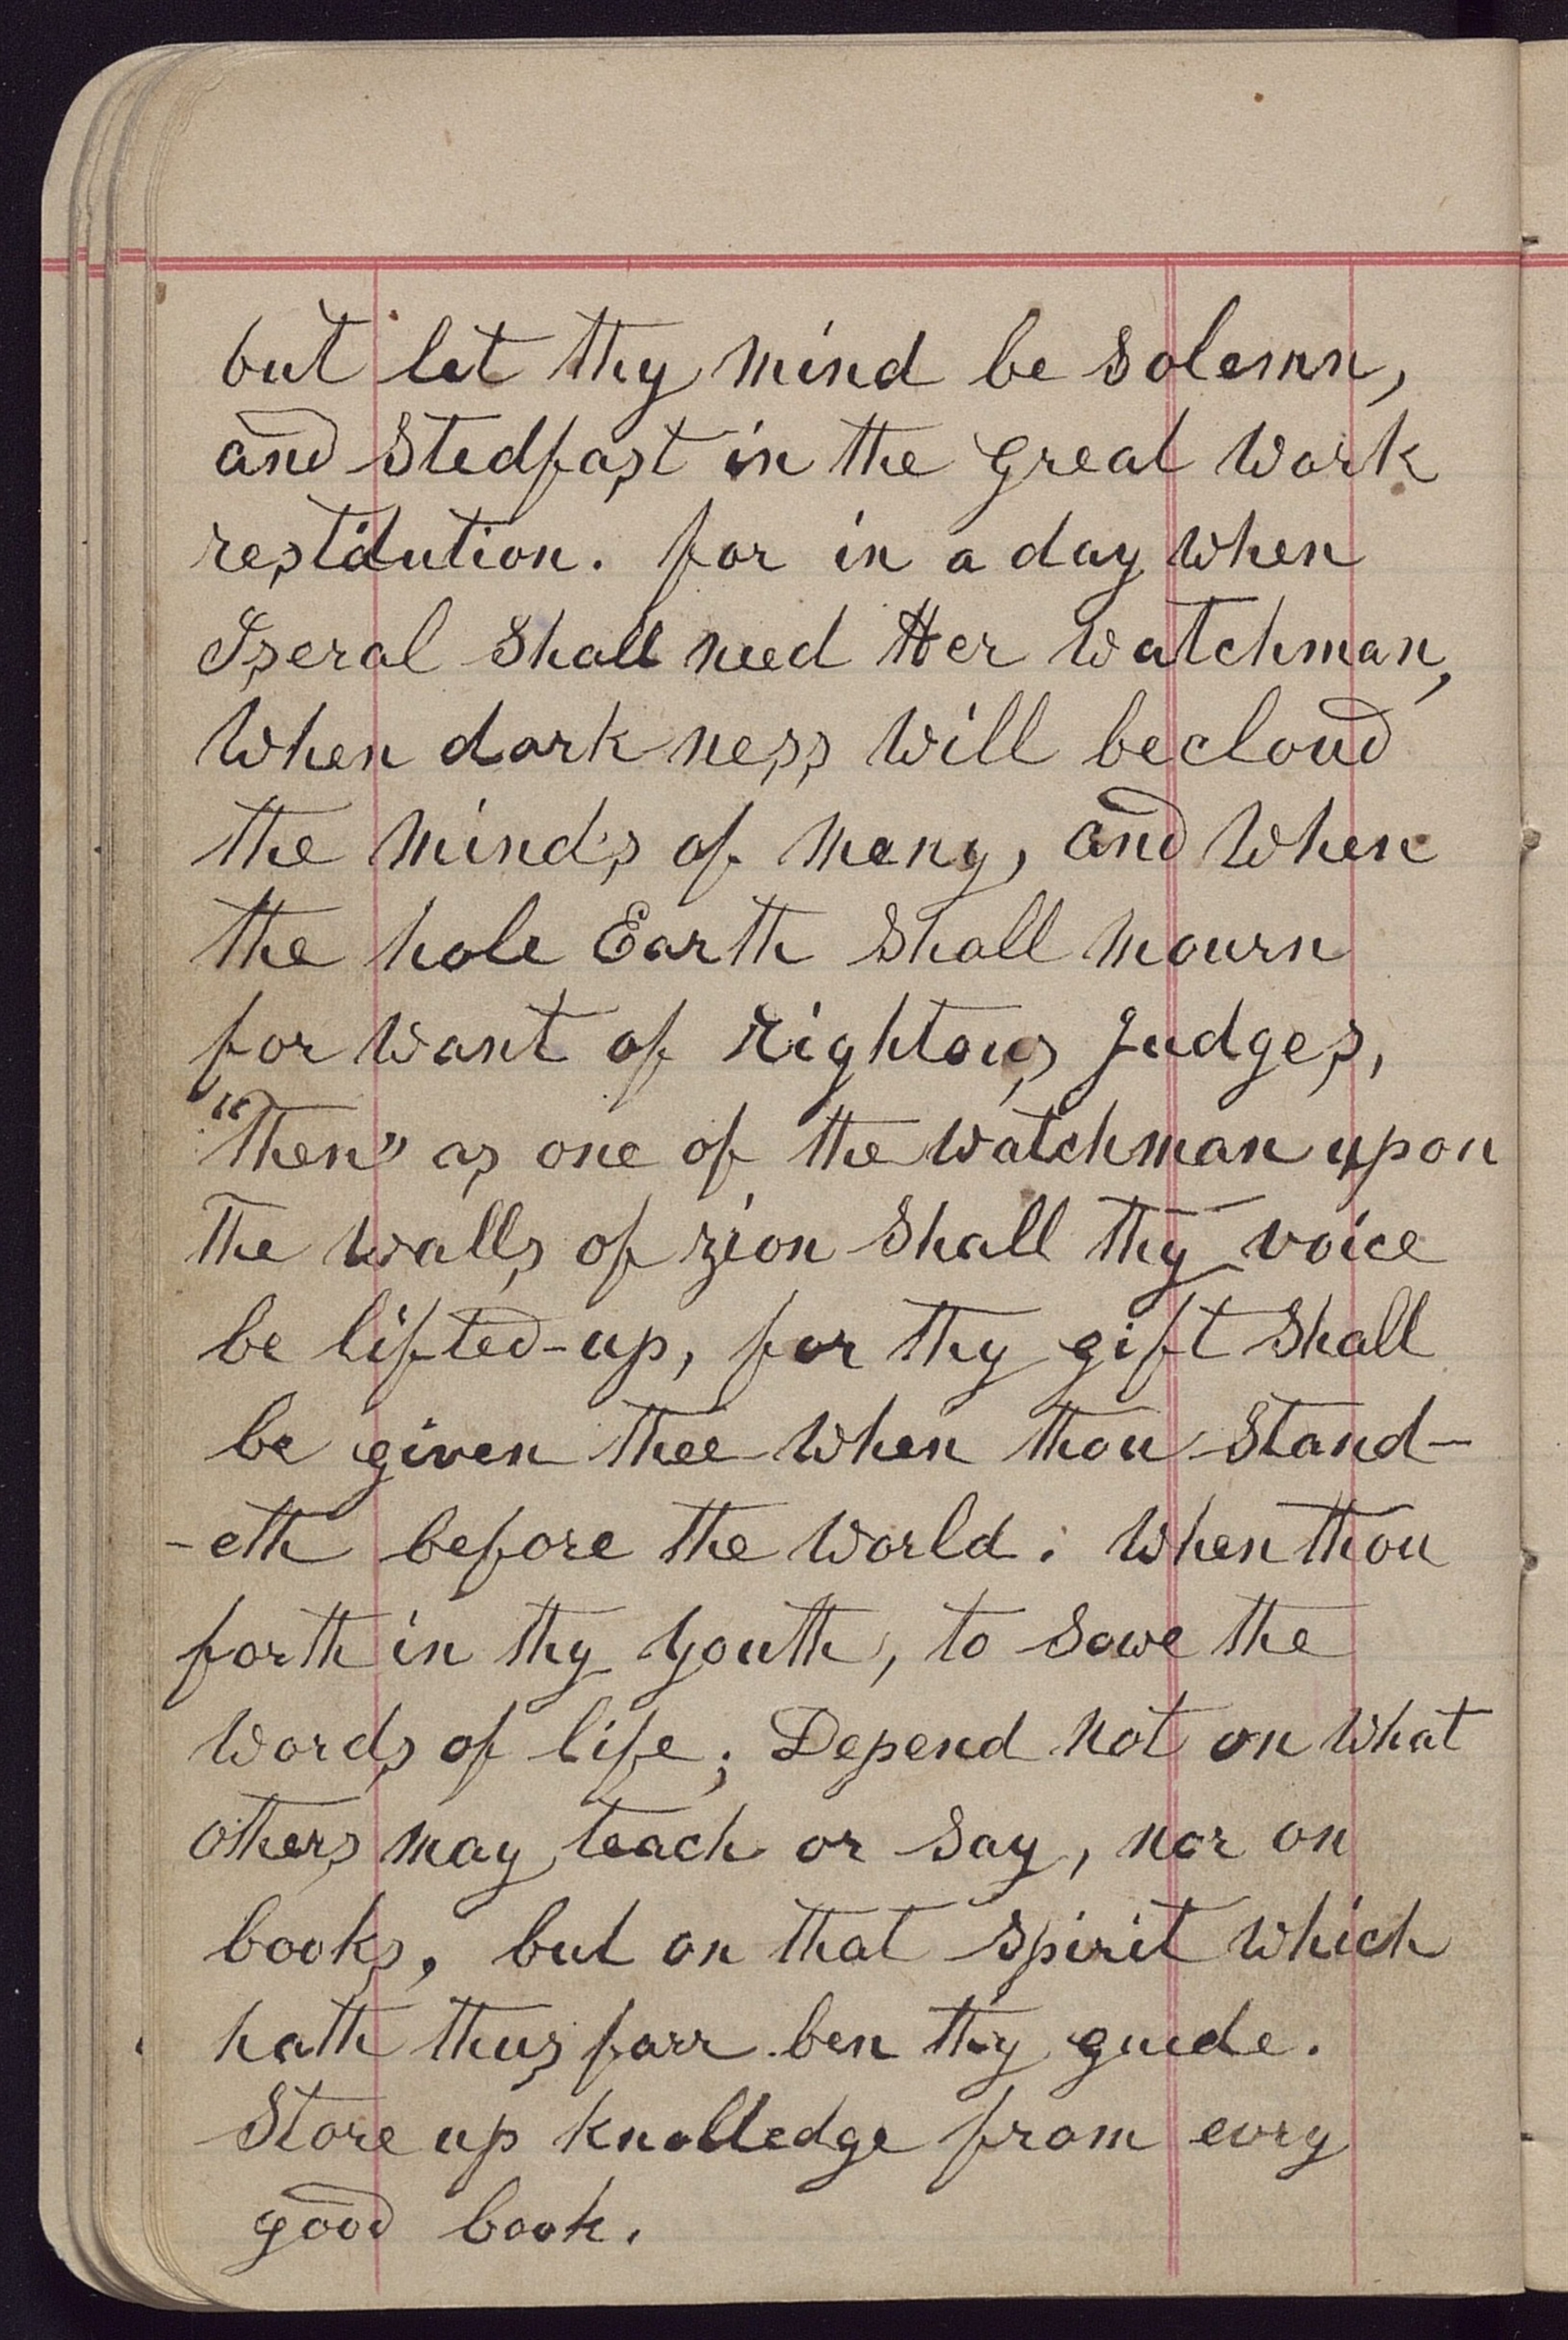 but let thy mind be solemn,
and Stedfast in the great Work
restitution. for in a day When
Iseral Shall need Her Watchman,
When dark ness Will becloud
the mind's of many, and When
the hole Earth Shall mourn
for Want of Rightous Judges,
"then" as one of the Watchman upon
The Walls of zion Shall thy voice
be lifted-up, for thy gift Shall
be given thee When thou Stand-
-eth before the World: When thou
forth in thy youth, to Sowe the
Words of life; Depend Not on What
others may teach or Say, nor on
books, but on that Spirit Which
hath thus farr ben thy guide.
Store up knolledge from evry
good book.